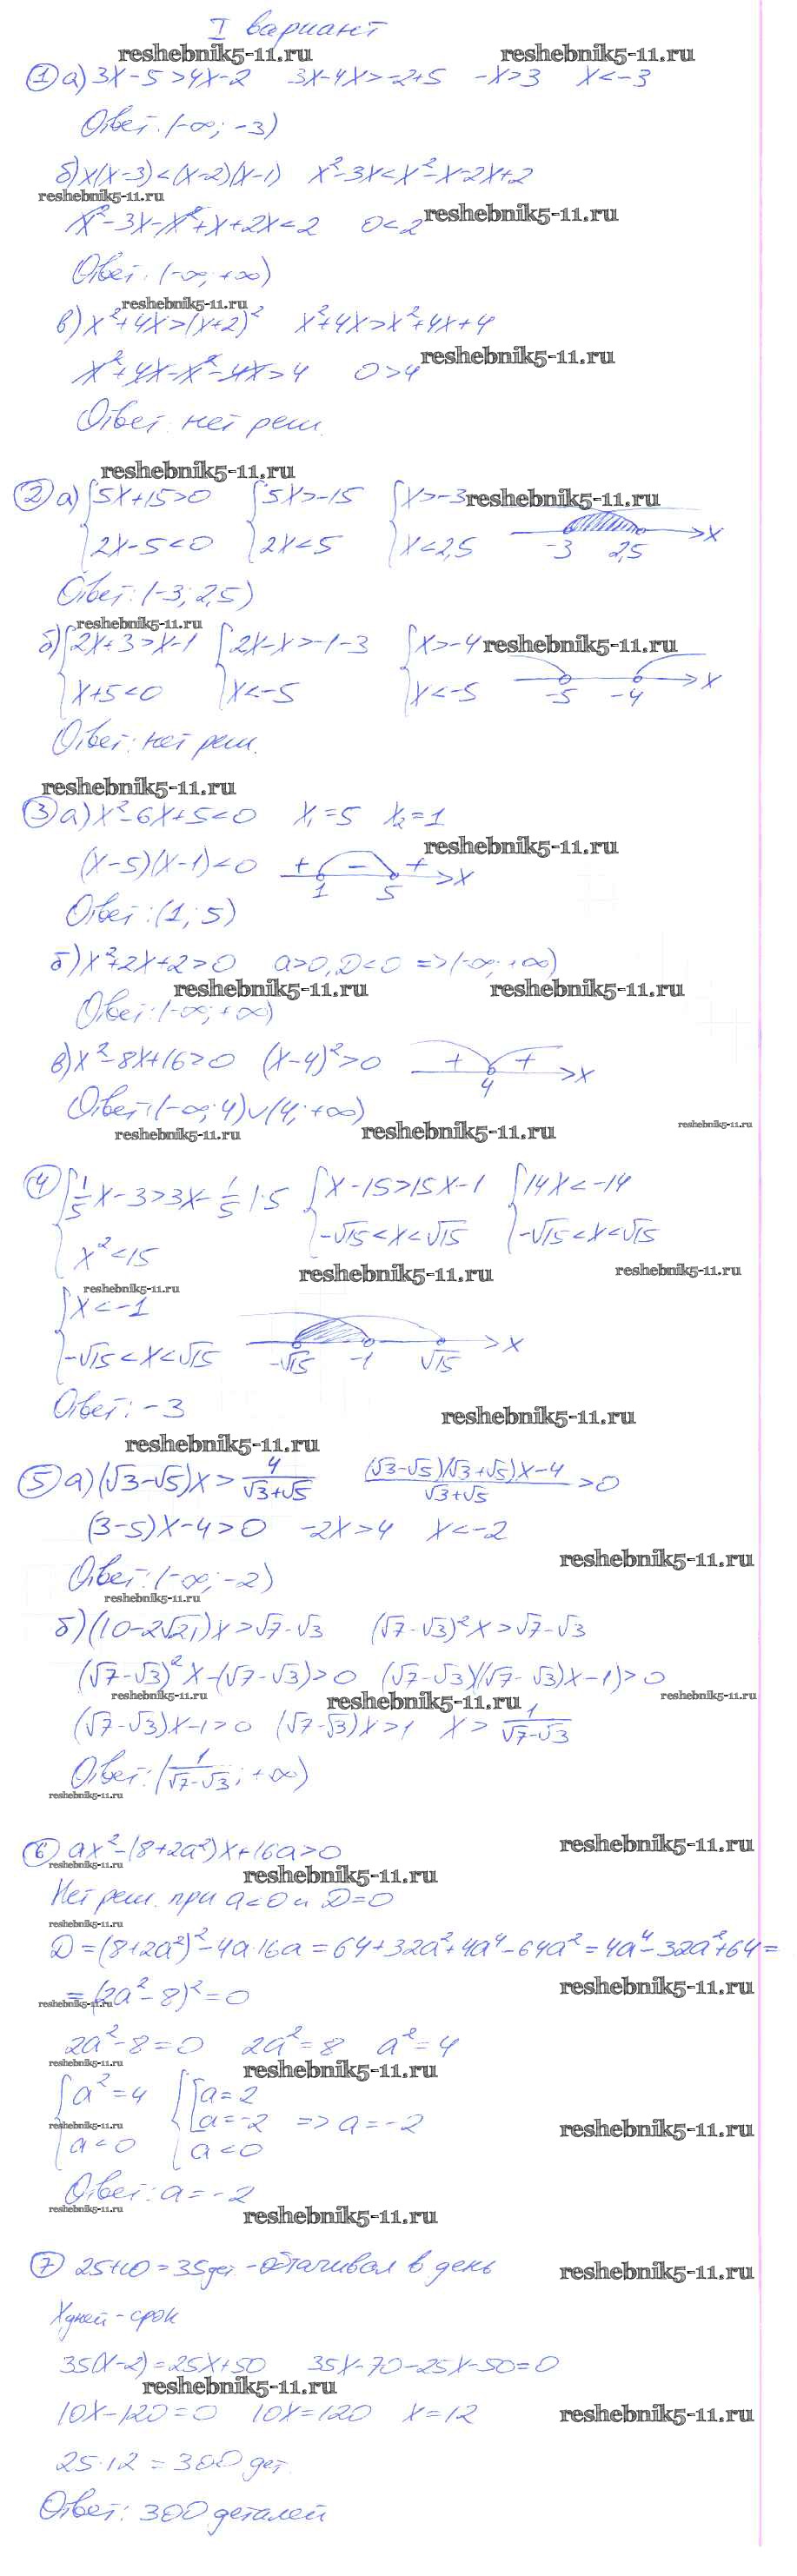 I вариант
reshebnik5-11.ru reshebnik5-11.ru
① а) 3x-5>4x-2 3x-4x>-2+5 -x>3 x<-3
Ответ: (-∞; -3)
б) x(x-3)<(x-2)(x-1) x²-3x<x²-x-2x+2
reshebnik5-11.ru
x²-3x-x²+x+2x<2 0<2 reshebnik5-11.ru
Ответ: (-∞; +∞)
reshebnik5-11.ru
в) x²+4x>(x+2)² x²+4x>x²+4x+4
x²+4x-x²-4x>4 0>4 reshebnik5-11.ru
Ответ: нет реш.
reshebnik5-11.ru
② а) {5x+15>0 {5x>-15 {x>-3 reshebnik5-11.ru
2x-5<0 2x<5 x<2,5 -3 2,5 x
Ответ: (-3; 2,5)
reshebnik5-11.ru
б) {2x+3>x-1 {2x-x>-1-3 {x>-4 reshebnik5-11.ru
x+5<0 x<-5 x<-5 -5 -4 x
Ответ: нет реш.
reshebnik5-11.ru
③ а) x²-6x+5<0 x₁=5 x₂=1
reshebnik5-11.ru
(x-5)(x-1)<0 + - + 1 5 x
Ответ: (1; 5)
б) x²+2x+2>0 a>0, D<0 => (-∞; +∞)
reshebnik5-11.ru reshebnik5-11.ru
Ответ: (-∞; +∞)
в) x²-8x+16>0 (x-4)²>0 + + 4 x
Ответ: (-∞; 4)∪(4; +∞)
reshebnik5-11.ru reshebnik5-11.ru reshebnik5-11.ru
④ {1/5x-3>3x-1/5 |·5 {x-15>15x-1 {14x<-14
x²<15 -√15<x<√15 -√15<x<√15
reshebnik5-11.ru reshebnik5-11.ru
reshebnik5-11.ru
{x<-1
-√15<x<√15 -√15 -1 √15 x
Ответ: -3
reshebnik5-11.ru
reshebnik5-11.ru
⑤ а) (√3-√5)x > 4/(√3+√5) ((√3-√5)(√3+√5)x-4)/(√3+√5) >0
(3-5)x-4>0 -2x>4 x<-2
reshebnik5-11.ru
Ответ: (-∞; -2)
reshebnik5-11.ru
б) (10-2√21)x>√7-√3 (√7-√3)²x>√7-√3
(√7-√3)²x-(√7-√3)>0 (√7-√3)((√7-√3)x-1)>0
reshebnik5-11.ru reshebnik5-11.ru reshebnik5-11.ru
(√7-√3)x-1>0 (√7-√3)x>1 x > 1/(√7-√3)
Ответ: (1/(√7-√3); +∞)
reshebnik5-11.ru
⑥ ax²-(8+2a²)x+16a>0 reshebnik5-11.ru
reshebnik5-11.ru reshebnik5-11.ru
Нет реш. при a<0 и D=0
reshebnik5-11.ru
D=(8+2a²)²-4a·16a=64+32a²+4a⁴-64a²=4a⁴-32a²+64=
reshebnik5-11.ru
=(2a²-8)²=0
reshebnik5-11.ru
2a²-8=0 2a²=8 a²=4
reshebnik5-11.ru reshebnik5-11.ru
{a²=4 {[a=2
reshebnik5-11.ru a=-2 => a=-2 reshebnik5-11.ru
a<0 a<0
Ответ: a=-2
reshebnik5-11.ru reshebnik5-11.ru
⑦ 25+10=35 дет - обтачивал в день reshebnik5-11.ru
X дней - срок
35(x-2)=25x+50 35x-70-25x-50=0
reshebnik5-11.ru
10x-120=0 10x=120 x=12 reshebnik5-11.ru
25·12=300 дет.
Ответ: 300 деталей